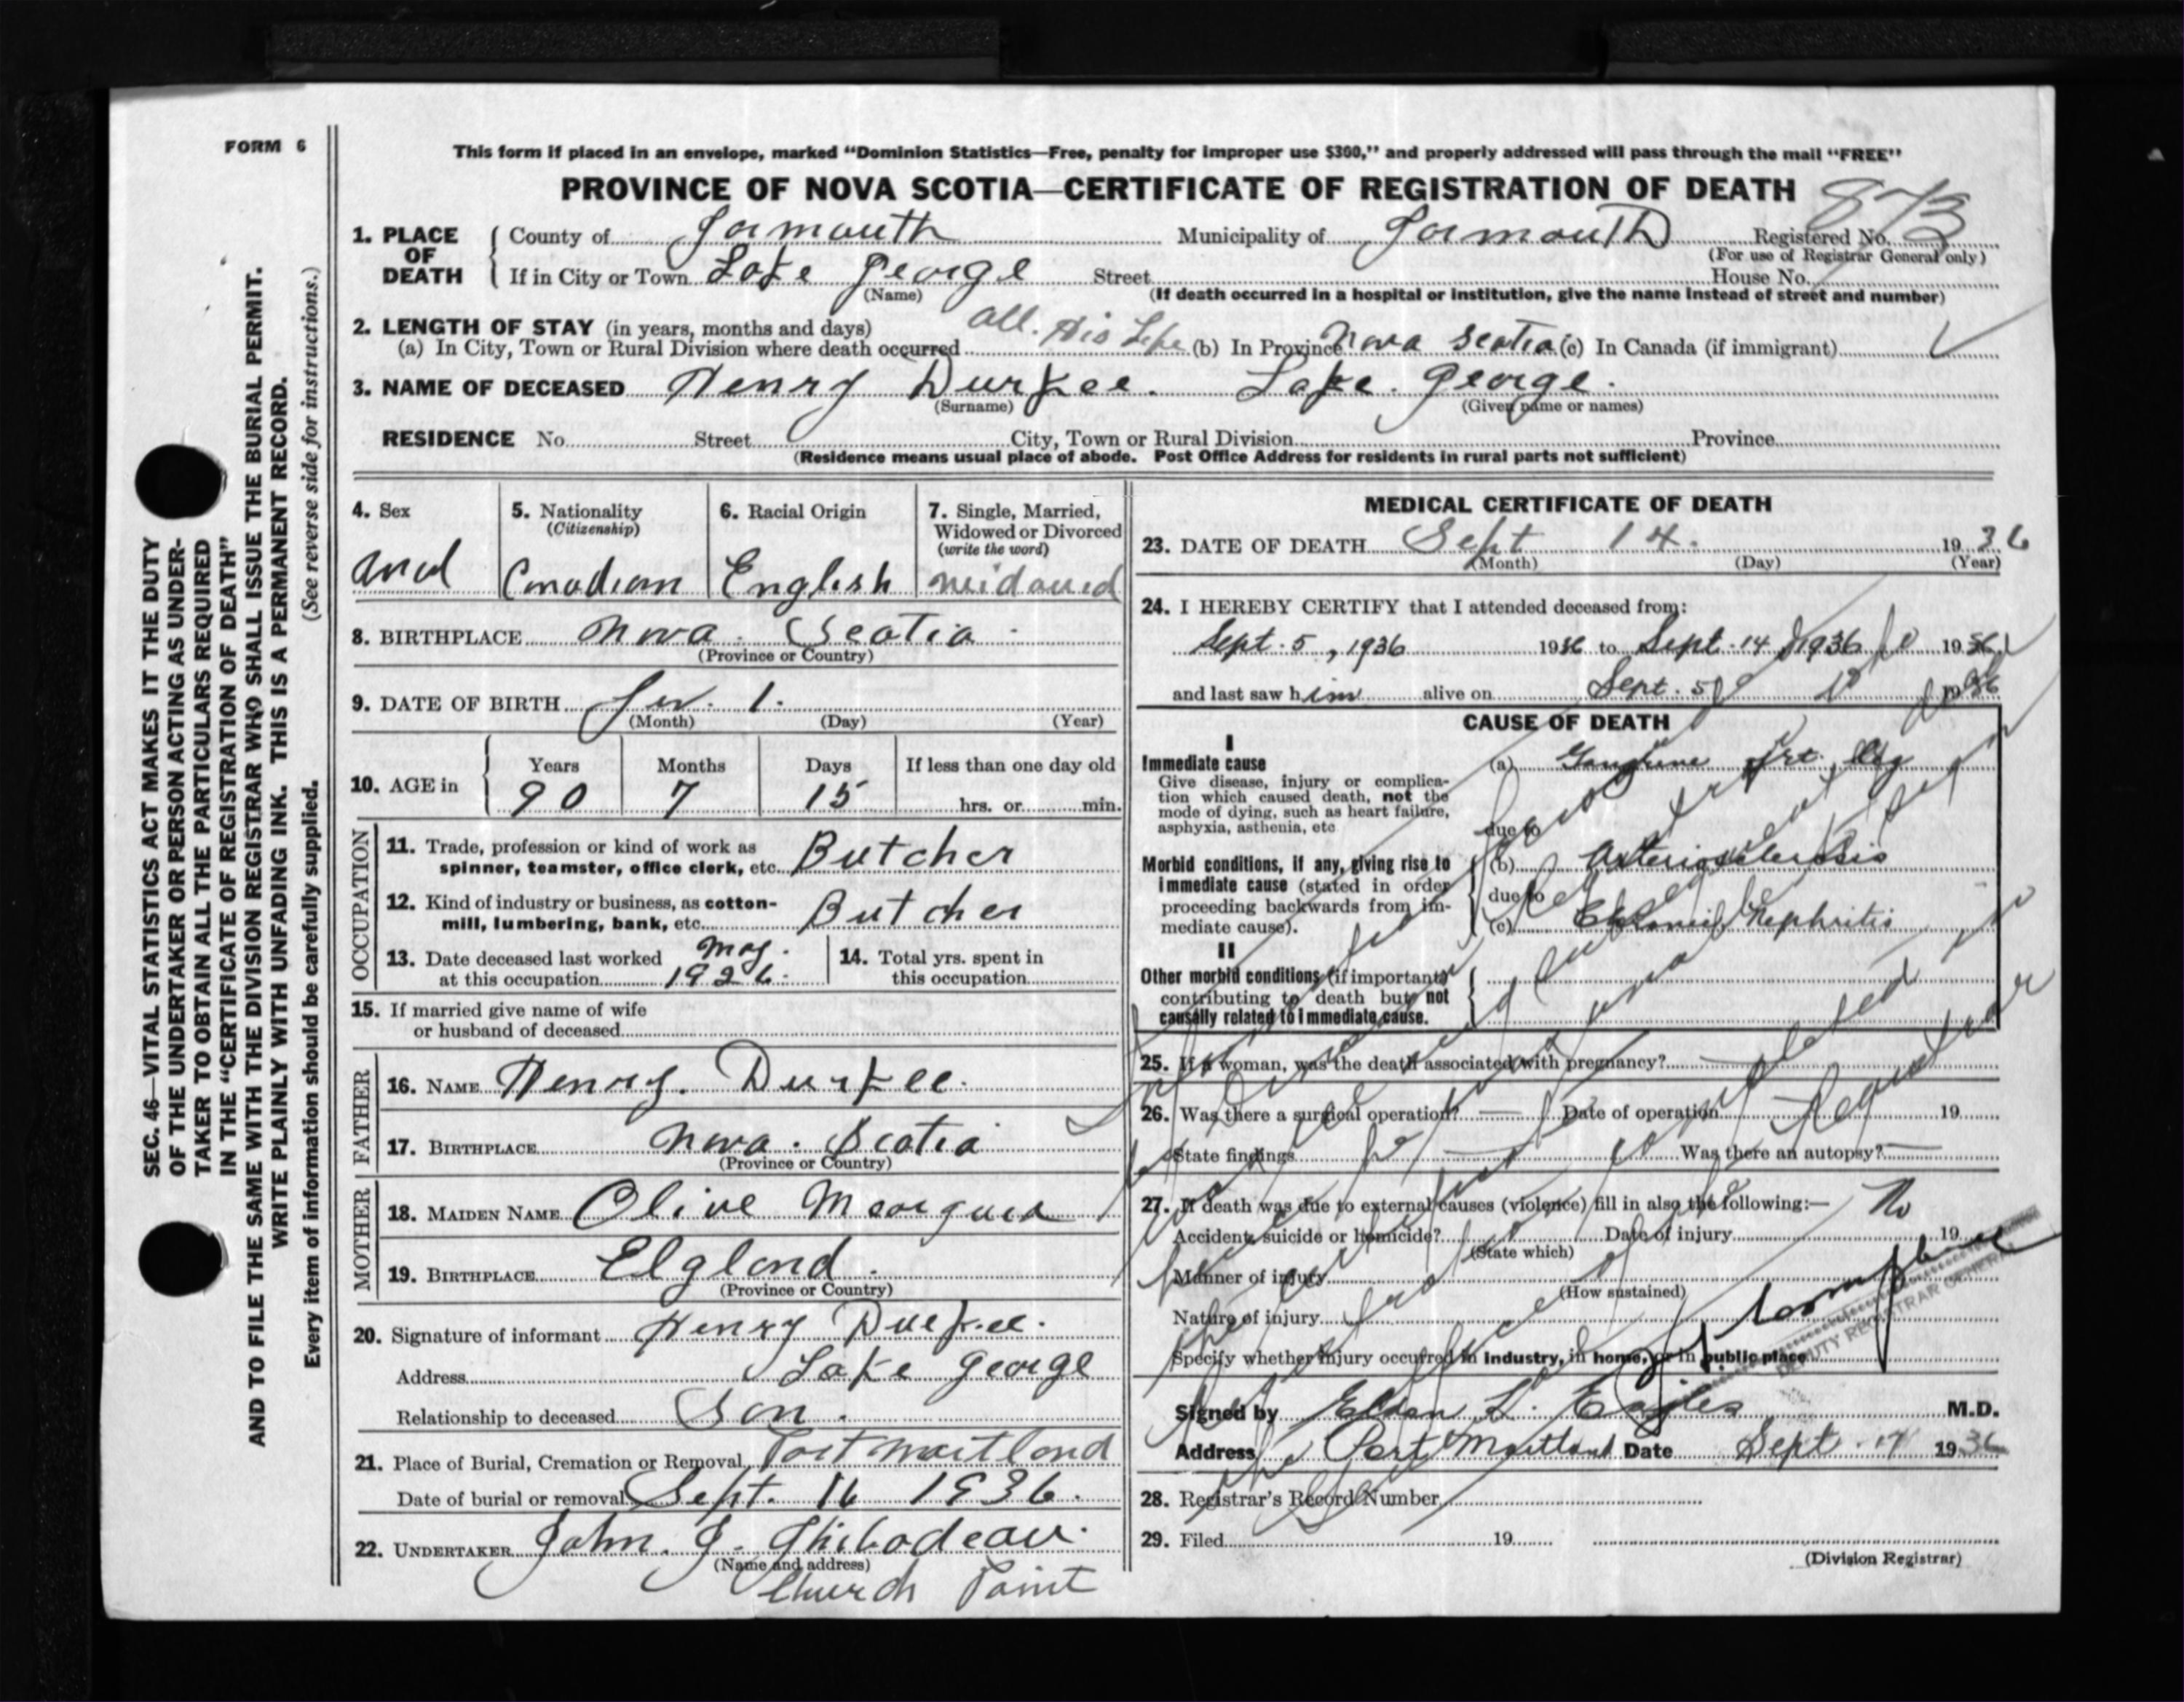 FORM 6
This form if placed in an envelope, marked “Dominion Statistics—Free, penalty for improper use $300,” and properly addressed will pass through the mail “FREE”
PROVINCE OF NOVA SCOTIA—CERTIFICATE OF REGISTRATION OF DEATH
873
1. PLACE OF DEATH
County of Yarmouth Municipality of Yarmouth Registered No.
(For use of Registrar General only)
If in City or Town Lake George Street House No.
(Name) (If death occurred in a hospital or institution, give the name instead of street and number)
2. LENGTH OF STAY (in years, months and days)
(a) In City, Town or Rural Division where death occurred All His Life (b) In Province Nova Scotia (c) In Canada (if immigrant)
3. NAME OF DECEASED Henry Durkee. Lake George.
(Surname) (Given name or names)
RESIDENCE No. Street City, Town or Rural Division Province
(Residence means usual place of abode. Post Office Address for residents in rural parts not sufficient)
4. Sex
5. Nationality (Citizenship) Canadian
6. Racial Origin English
7. Single, Married, Widowed or Divorced (write the word) Widowed
8. BIRTHPLACE Nova Scotia
(Province or Country)
9. DATE OF BIRTH 1.
(Month) (Day) (Year)
10. AGE in Years 90 Months 7 Days 15 If less than one day old hrs. or min.
OCCUPATION
11. Trade, profession or kind of work as spinner, teamster, office clerk, etc. Butcher
12. Kind of industry or business, as cotton-mill, lumbering, bank, etc. Butcher
13. Date deceased last worked at this occupation May. 1926
14. Total yrs. spent in this occupation
15. If married give name of wife or husband of deceased
FATHER
16. NAME Henry. Durkee.
17. BIRTHPLACE Nova Scotia
(Province or Country)
MOTHER
18. MAIDEN NAME Olive
19. BIRTHPLACE Elgland
(Province or Country)
20. Signature of informant Henry Durkee.
Address Lake George
Relationship to deceased Son.
21. Place of Burial, Cremation or Removal Port Maitland
Date of burial or removal Sept. 16 1936.
22. UNDERTAKER John. J. Thibodeau.
(Name and address)
Church Point
MEDICAL CERTIFICATE OF DEATH
23. DATE OF DEATH Sept 14. 1936
(Month) (Day) (Year)
24. I HEREBY CERTIFY that I attended deceased from:
Sept. 5, 1936 1936 to Sept. 14 1936 1936
and last saw him alive on Sept. 5 1936
CAUSE OF DEATH
I
Immediate cause
Give disease, injury or complication which caused death, not the mode of dying, such as heart failure, asphyxia, asthenia, etc
(a) Gangrene rt. leg
due to
Morbid conditions, if any, giving rise to immediate cause (stated in order proceeding backwards from immediate cause).
(b) Arteriosclerosis
due to
(c) Chronic Nephritis
II
Other morbid conditions (if important) contributing to death but not causally related to immediate cause.
25. If a woman, was the death associated with pregnancy?
26. Was there a surgical operation? Date of operation 19
State findings Was there an autopsy?
27. If death was due to external causes (violence) fill in also the following:— No
Accident, suicide or homicide? Date of injury 19
(State which)
Manner of injury
(How sustained)
Nature of injury
Specify whether injury occurred in industry, in home, or in public place
DEPUTY REGISTRAR GENERAL
Signed by Eldon L. Eagles M.D.
Address Port Maitland Date Sept. 1936
28. Registrar's Record Number
29. Filed 19
(Division Registrar)
SEC. 46—VITAL STATISTICS ACT MAKES IT THE DUTY
OF THE UNDERTAKER OR PERSON ACTING AS UNDER-
TAKER TO OBTAIN ALL THE PARTICULARS REQUIRED
IN THE “CERTIFICATE OF REGISTRATION OF DEATH”
AND TO FILE THE SAME WITH THE DIVISION REGISTRAR WHO SHALL ISSUE THE BURIAL PERMIT.
WRITE PLAINLY WITH UNFADING INK. THIS IS A PERMANENT RECORD.
Every item of information should be carefully supplied. (See reverse side for instructions.)